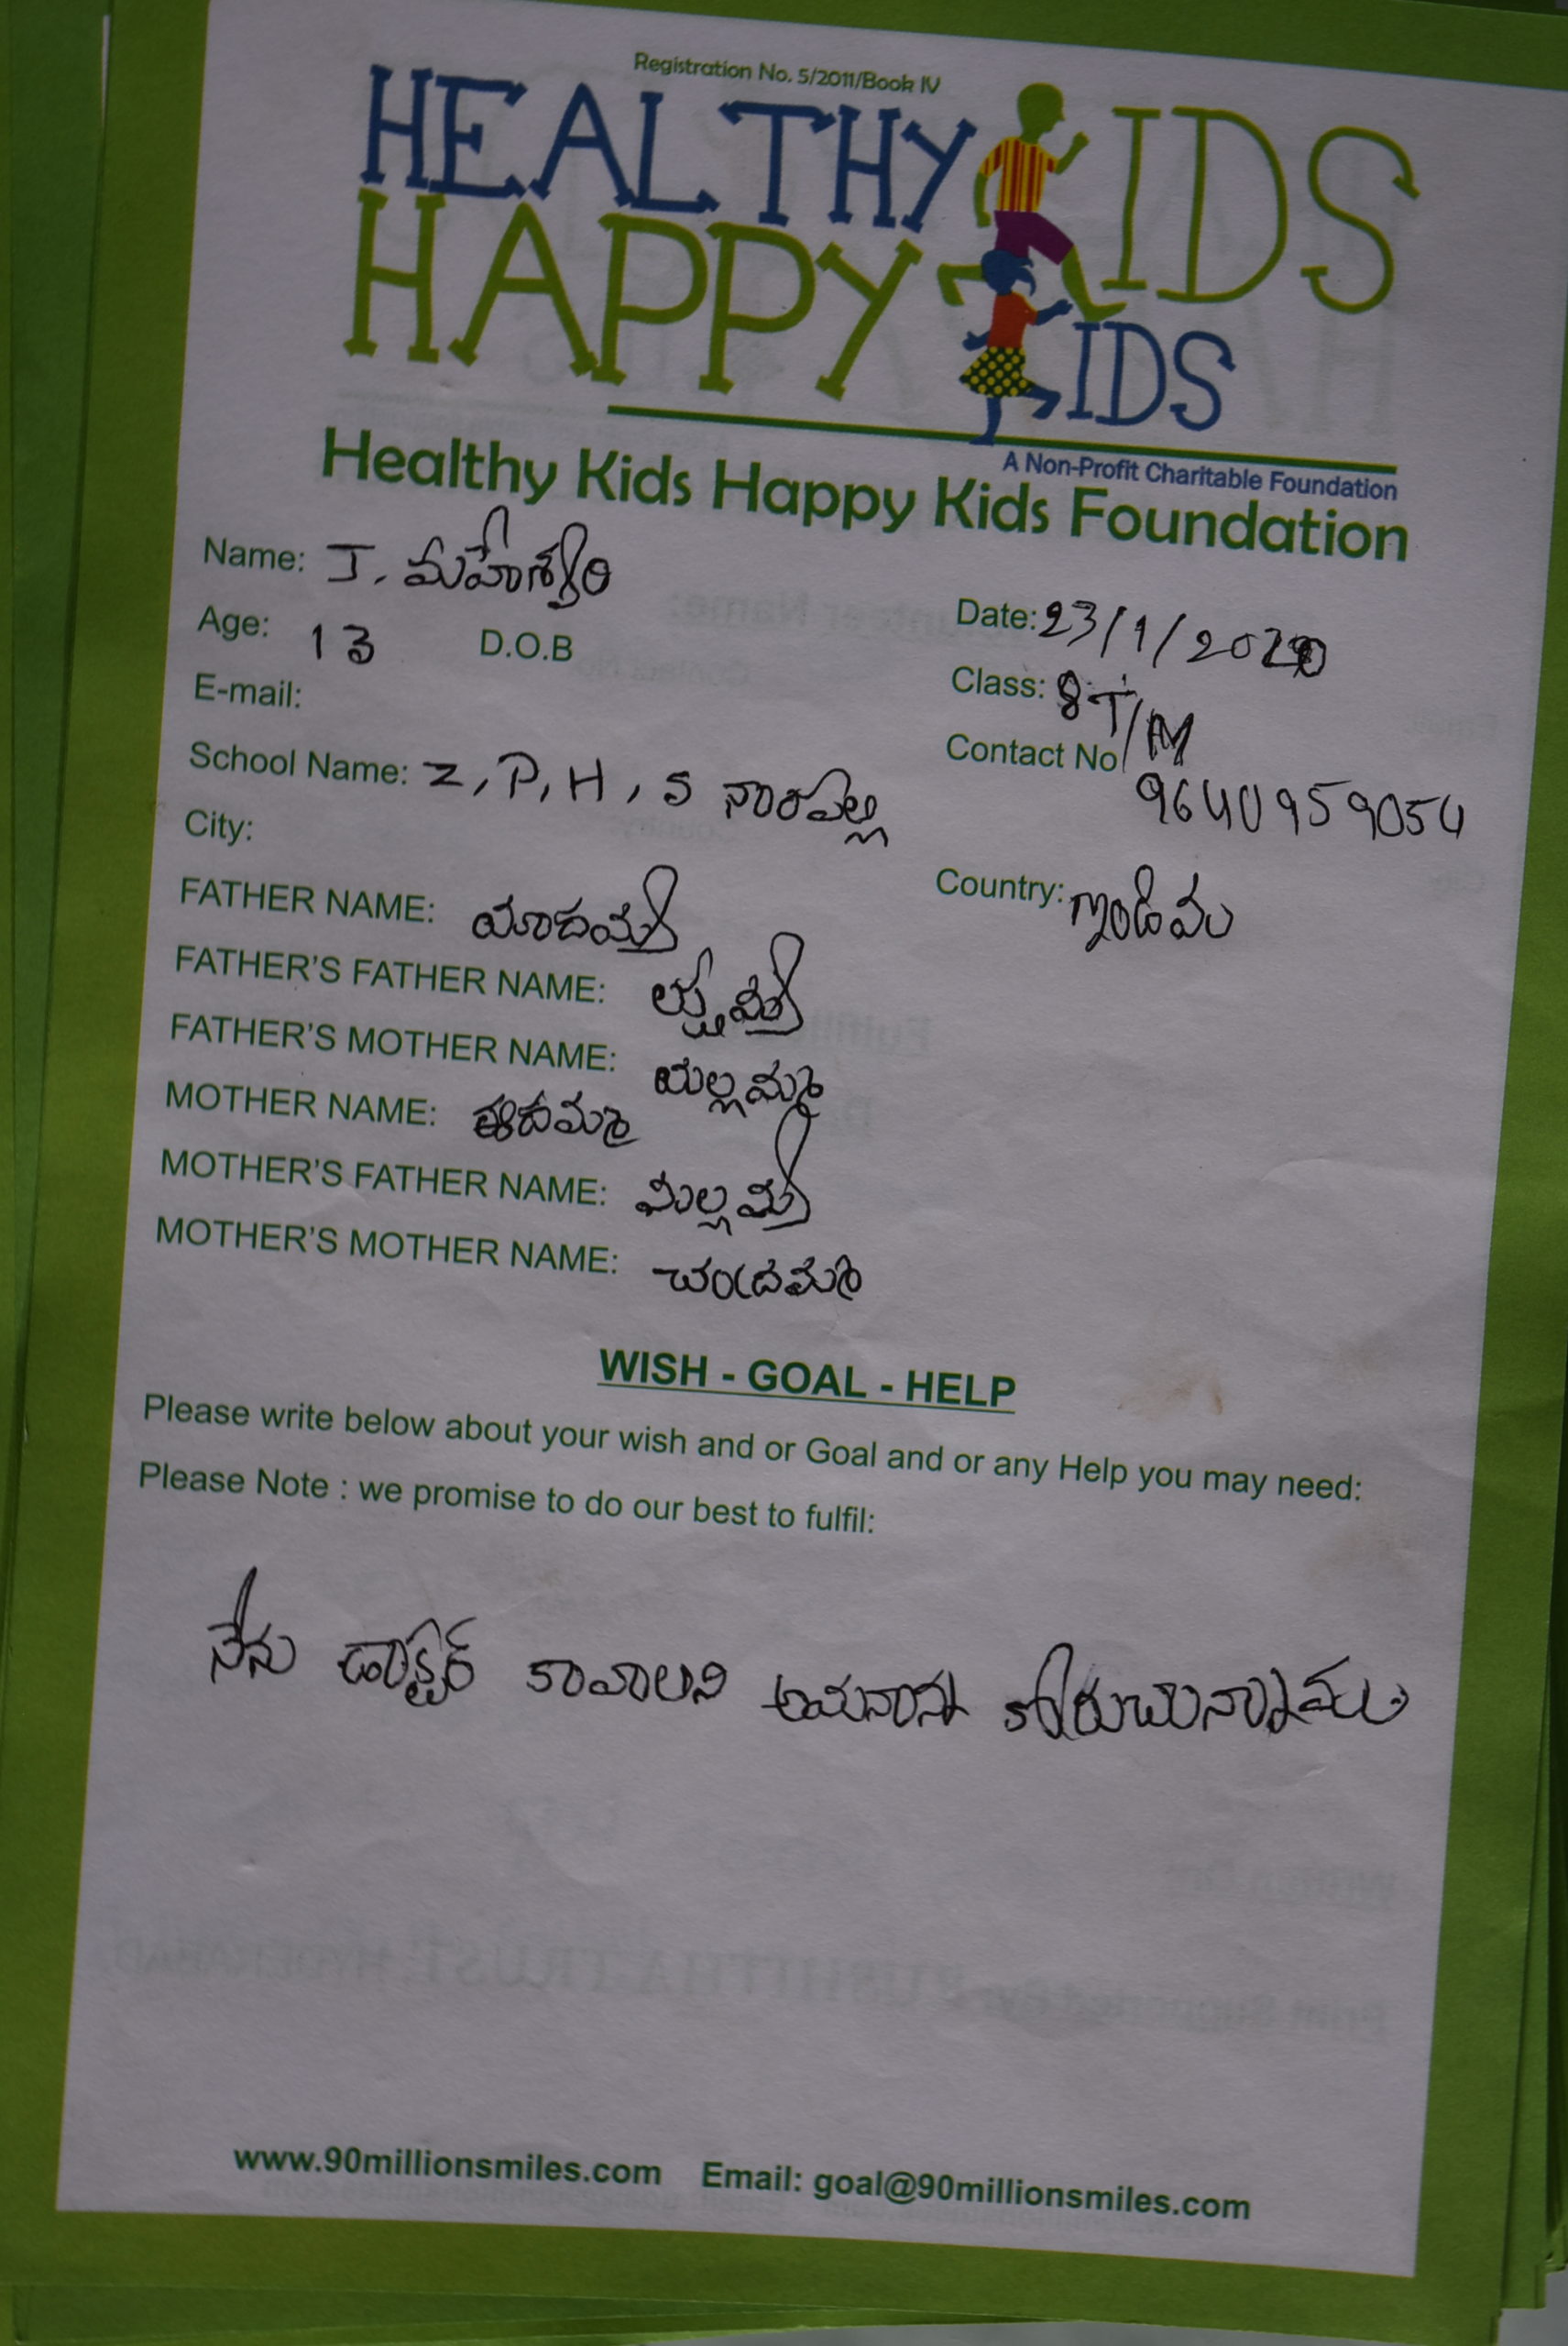 Registration No. 5/2011/Book IV
HEALTHY KIDS
HAPPY KIDS
A Non-Profit Charitable Foundation
Healthy Kids Happy Kids Foundation
Name: J. మహేశ్వరి
Date: 23/1/2020
Age: 13 D.O.B
Class: 8 T/M
E-mail:
Contact No 9640959054
School Name: Z, P, H, S నారపల్లి
City:
Country: ఇండియ
FATHER NAME: యాదయ్య
FATHER'S FATHER NAME:
FATHER'S MOTHER NAME: యల్లమ్మ
MOTHER NAME: ఈదమ్మ
MOTHER'S FATHER NAME: మల్లయ్య
MOTHER'S MOTHER NAME: చంద్రమ్మ
WISH - GOAL - HELP
Please write below about your wish and or Goal and or any Help you may need:
Please Note : we promise to do our best to fulfil:
నేను డాక్టర్ కావాలని కోరుచున్నాను
www.90millionsmiles.com Email: goal@90millionsmiles.com